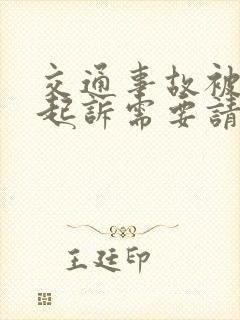 交通事故被
起訴需要請
王廷印